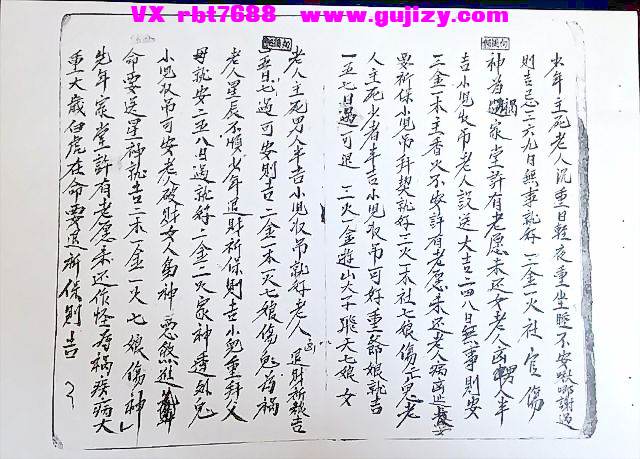 VX rbt7688 www.gujizy.com
少年主死老人沉重日輕夜重坐睡不安 謝過
則吉忌三六九日無事就好 二金一火社官傷
神為禍家堂許有老愿未还女老人凶 人半
吉小児收吊老人設送大吉二四八日無事則安
三金一木主香火不安許有老愿未还老人病凶
要祈保小児吊拜契就好三火一木社七娘傷亡鬼老
人主死少者半吉小児收吊可好重爺娘就吉
一五七日過可退 二火一金遊山大王 天七娘女
老人主死男人半吉小児收吊就好老人 退財祈報吉
五日七過可安則吉二金一木一火七娘傷鬼為禍
老人星辰不順少年退財祈保則吉小児重拜父
母就安二五八日過就好 二金二火家神透外鬼
小児收吊可安老人破財女人為神悪煞進
命要送星神就吉二木一金一火七娘傷神
先年家堂許有老愿未还作怪為禍疾病大
重大歲白虎在命要送祈保則吉